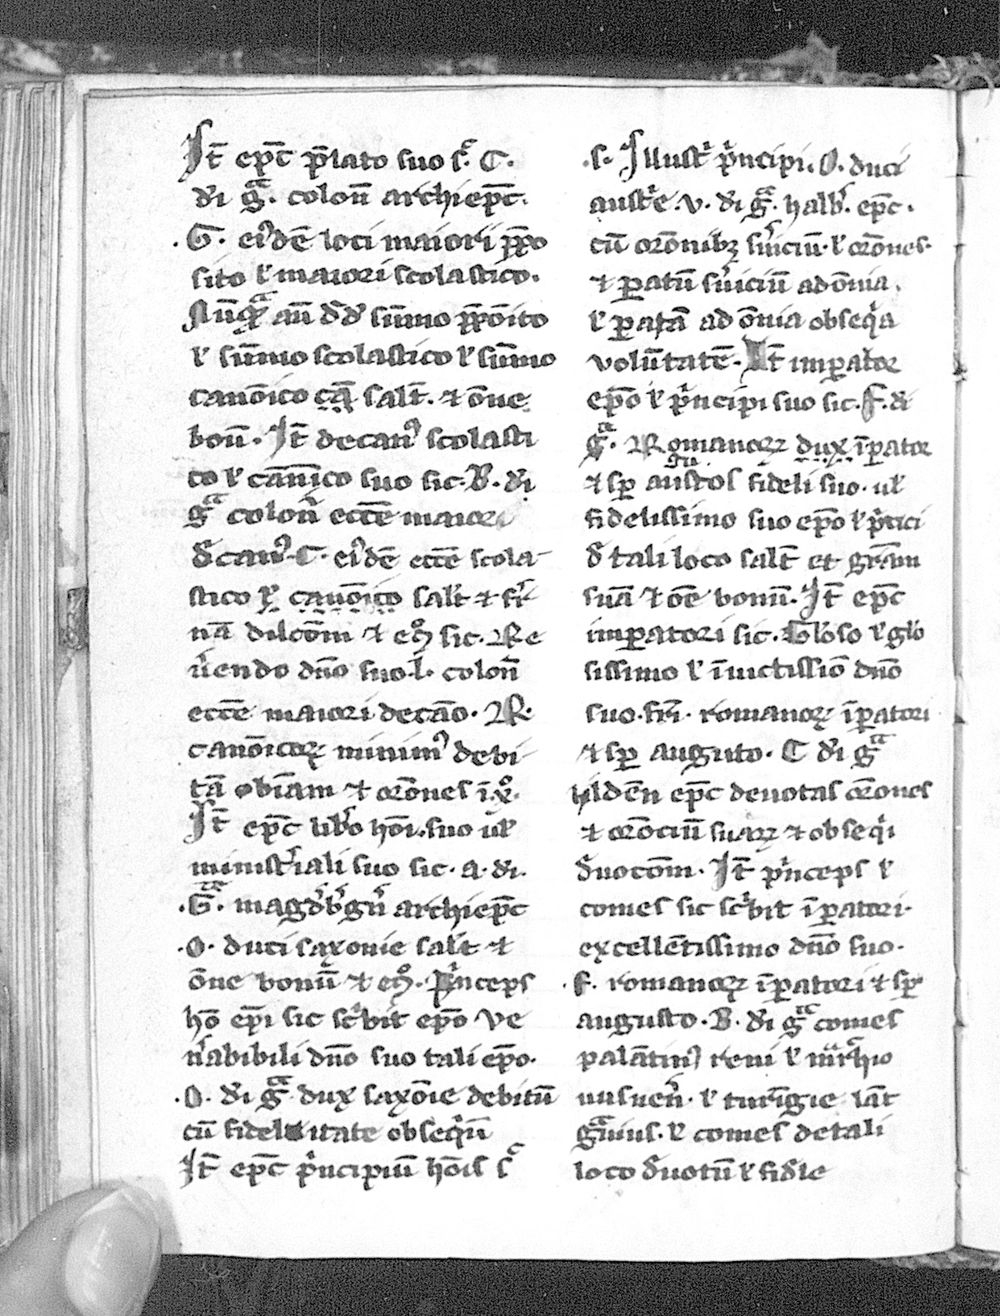 It̄ ep̄c p̄lato suo s. C.
di gͣ. colon̄ archiep̄c.
.G. eidē loci maiori p̄po
sito ł maiori scolastico.
sūmo p̄pōito
ł sūmo scolastico ł sūmo
canōico salt̄. ⁊ ōne
bon̄. It̄ decan⁹ scolasti
co ł canōico suo sic. B. di
gͣ colon̄ ecc̄e maior
decan⁹. C. eidē ecc̄e scola
stico canōico salt̄ ⁊ fr̄
nā dilc̄om ⁊ sic. Re
u̓endo dn̄o suo. l. colon̄
ecc̄e maiori decāo. R.
canōicoꝝ minim⁹ debi
tā obīam ⁊ or̄ones ī xͦ.
It̄ ep̄c lib̓o hōi. suo uł
minist̓iali suo sic. a. di.
.Gͣ. magd̓b̓gn̄ archiep̄c
.O. duci saxonie salt̄ ⁊
ōne bonū ⁊ Pͥnceps
hō ep̄i sic sc̓bit ep̄o ve
n̓abibili dn̄o suo tali ep̄o.
.O. di gͣ dux saxōie debitū
cū fidelitate obseqͥū
It̄ ep̄c pͥncipiū hōis s
.s. Illustͥ pͥncipi. O. duci
austͥe .v. di gͣ. halb̓. ep̄c.
cū or̄onibꝫ s̓uiciū. ł or̄ones.
⁊ ꝑatū s̓uiciū ad ōnia.
ł ꝑatā ad ōnia obseqͥa
volūtatē. It̄ imꝑator
ep̄o ł pͥncipi suo sic. F. di
gͣ. Romanoꝝ dux īꝑator
⁊ sꝑ austos fideli suo. uł
fidelissimo suo ep̄o ł pͥncipi
d̓ tali loco salt̄ et gr̄am
suā ⁊ ōe bonū. It̄ ep̄c
imꝑatori sic. Gl̓oso ł glo
sissimo ł īuictissīo dn̄o
suo. fr̄i. romanoꝝ īꝑatori
⁊ sꝑ auguto. C di gͣ
hildēn ep̄c deuotas or̄ones
⁊ or̄ociū suaꝝ ⁊ obseqͥi
d̓uoc̄om. It̄ pͥnceps ł
comes sic sc̓bit īꝑatori.
excellētissimo dn̄o suo.
.F. romanoꝝ īꝑatori ⁊ sꝑ
augusto. B. di gͣ comes
palātin⁹ reni ł
ł turīgie lāt
gͣuius. ł comes de tali
loco d̓uotū ł fid̓le